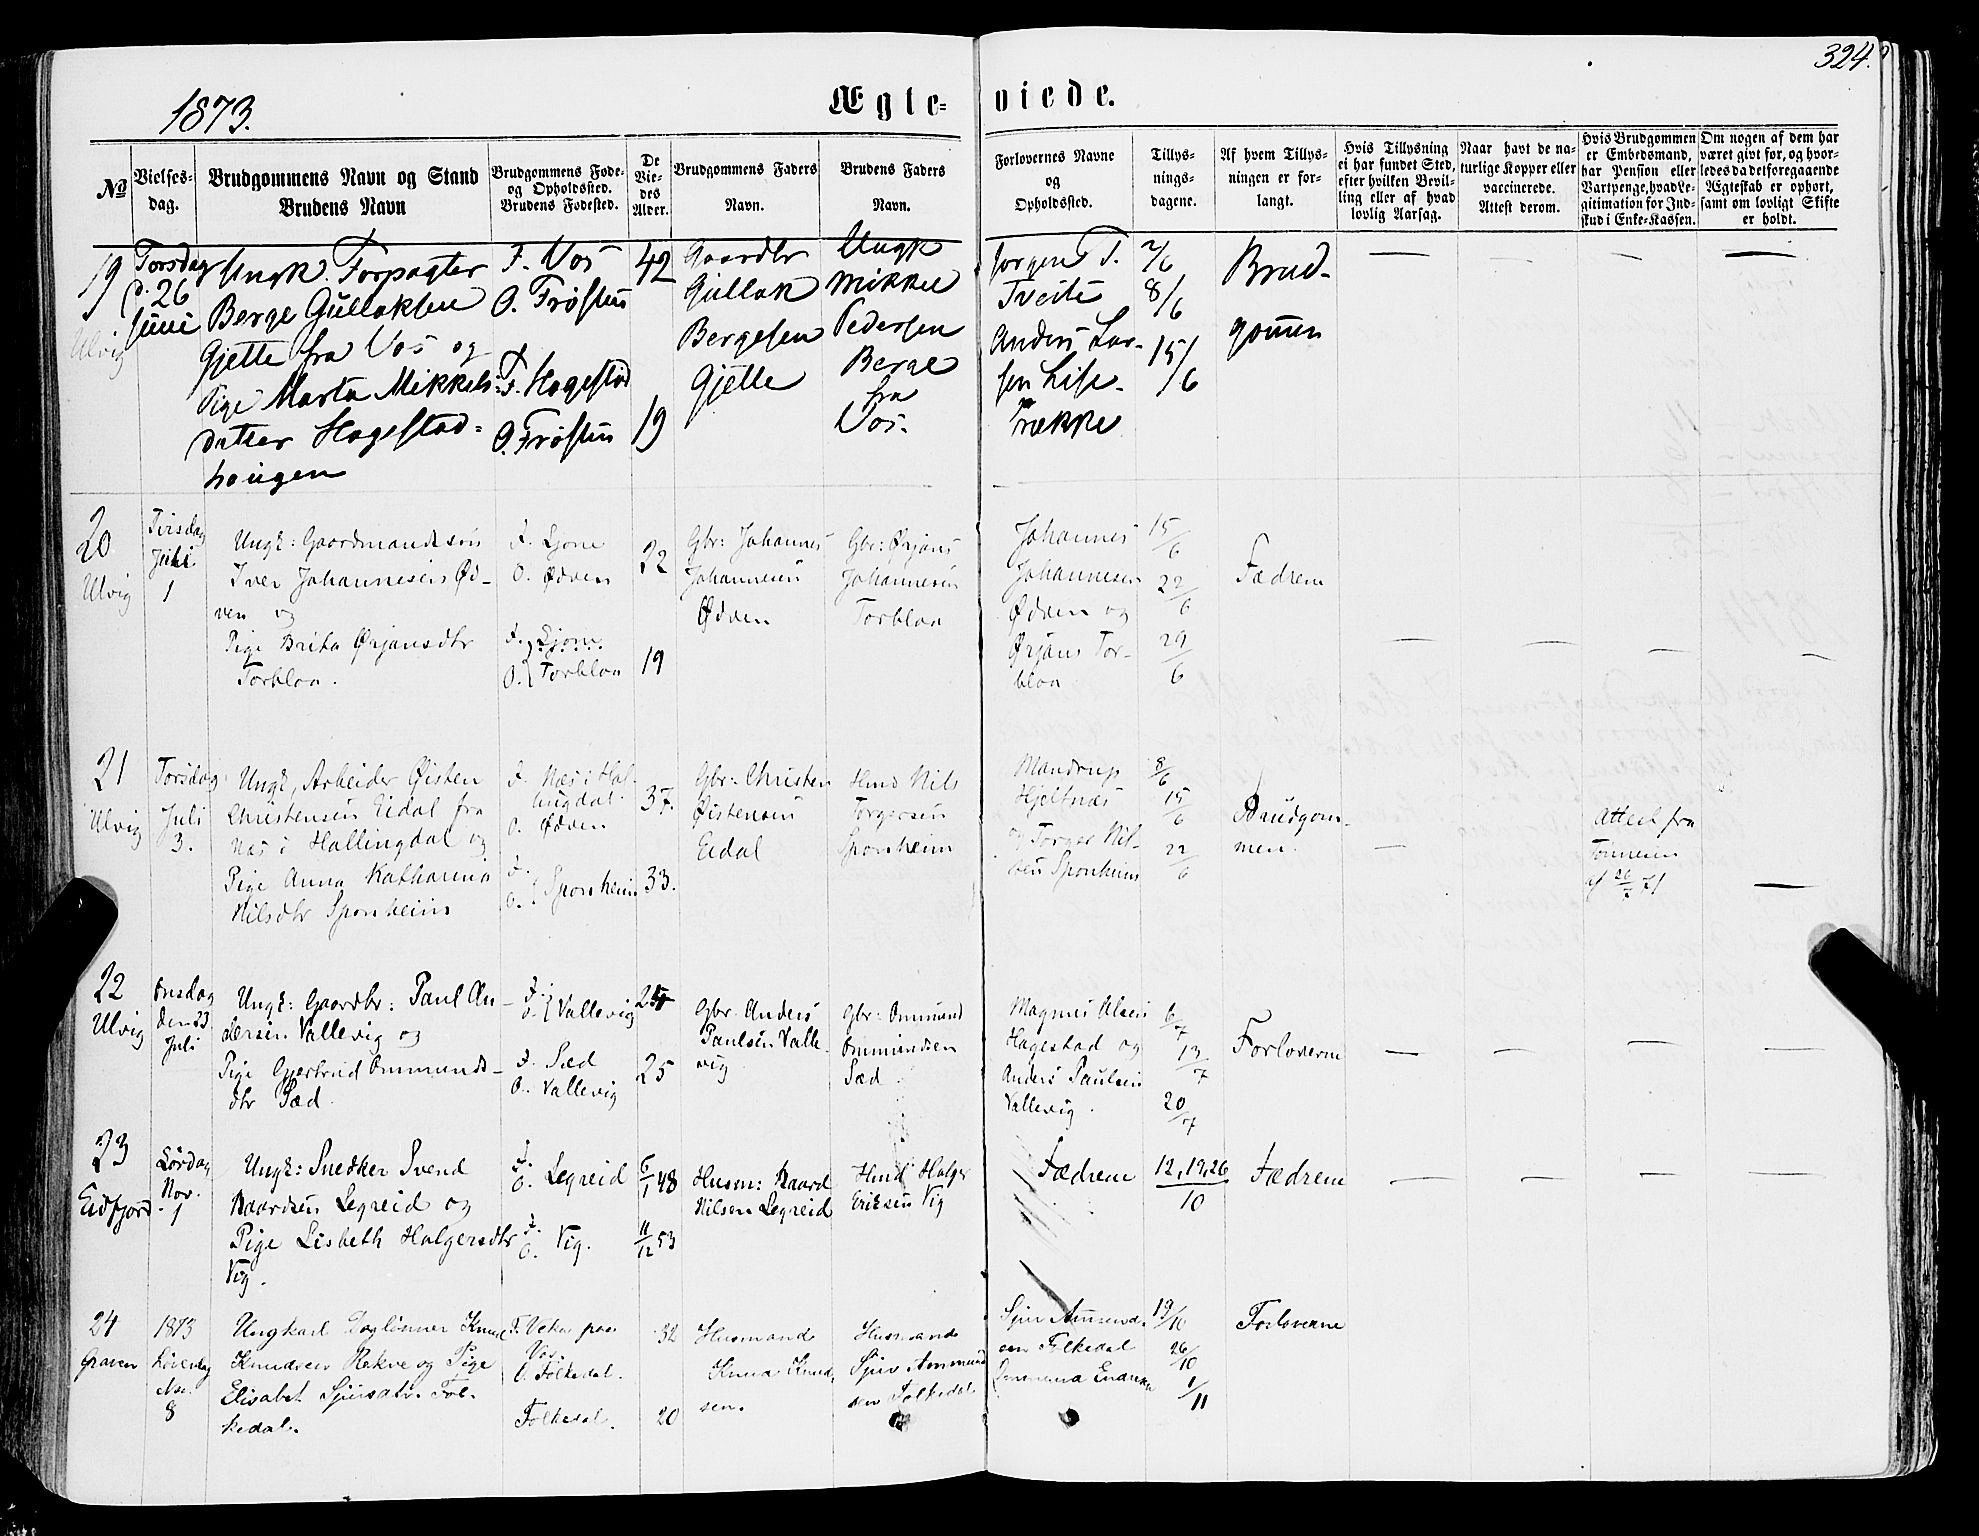 1873.
Ægte-
viede.
324.
No
Vielses-
dag.
Brudgommens Navn og Stand
Brudens Navn
Brudgommens Føde-
og Opholdssted.
Brudens Fødested.
De
Vie-
des
Alder.
Brudgommens Faders
Navn.
Brudens Faders
Navn.
Forlovernes Navne
og
Opholdssted.
Tillys-
nings-
dagene.
Af hvem Tillys-
ningen er for-
langt.
Hvis Tillysning
ei har fundet Sted,
efter hvilken Bevil-
ling eller af hvad
lovlig Aarsag.
Naar havt de na-
turlige Kopper eller
vaccinerede.
Attest derom.
Hvis Brudgommen
er Embedsmand,
har Pension eller
Vartpenge, hvad Le-
gitimation for Ind-
skud i Enke-Kassen.
Om nogen af dem har
været givt før, og hvor-
ledes da det foregaaende
Ægteskab er ophørt,
samt om lovligt Skifte
er holdt.
19
Ulvig
Torsdag
d. 26
Juni
Ungk. Forpagter
Berge Gullaksen
Gjelle fra Vos og
Pige Marta Mikkels-
datter Hagestad-
hougen
F. Vos
O. Trøften
F. Hagestad
O. Trøften
42
19
Gaardbr
Gullak
Bergesen
Gjelle
Ungk
Mikkel
Pedersen
Berge
fra
Vos.
Jørgen T.
Tveito
Anders Lar-
sen Lise-
brække
2/6
8/6
15/6
Brud-
gomen
20
Ulvig
Tirsdag
Juli
1
Ungk: Gaardmandssøn
Iver Johannesen Ød-
ven og
Pige Brita Ørjansdtr
Torblaa.
F. Ljone
O. Ødven
F. Ljone
O. Torblaa
22
19
Gbr: Johannes
Johannesen
Ødven
Gbr: Ørjans
Johannesen
Torblaa
Johannes
Johannesen
Ødven og
Ørjans Tor-
blaa
15/6
22/6
29/6
Fædrene
21
Ulvig
Torsdag
Juli
3.
Ungk, Arbeider Øisten
Christensen Eidal fra
Næs i Hallingdal og
Pige Anna Katharina
Nilsdtr Sponheim
F. Næs i Hal-
lingdal.
O. Ødven
F.
O. Sponheim
37.
33.
Gbr: Christen
Øistensen
Eidal
Hmd Nils
Torgersen
Sponheim
Mandrup
Hjeltnæs
og Torger Nil-
sen Sponheim
8/6
15/6
22/6
Brudgom-
men.
Attest fra
af 26/7 71
22
Ulvig
Onsdag
den 23
Juli
Ungk: Gaardbr: Paul An-
dersen Vallevig og
Pige Gjertrud Ommunds-
dtr Sæd.
F.
O. Vallevig
F. Sæd
O. Vallevig
24
25
Gbr. Anders
Paulsen Valle-
vig
Gbr: Ommund
Ommundsen
Sæd
Magnus Olsen
Hagestad og
Anders Paulsen
Vallevig.
6/7
13/7
20/7
Forloverne
23
Eidfjord
Lørdag
Nov.
1
Ungk: Snedker Svend
Baardsen Legreid og
Pige Lisbeth Holgersdtr
Vig.
F.
O. Legreid
F.
O. Vig.
6/1 48
11/12 53
Husm: Baard
Nilsen Legreid
Hmd Holger
Eriksen Vig
Fædrene
12, 19, 26
10
Fædrene
24
Graven
1873
Løverdag
Nov.
8
Ungkarl Daglønner Knud
Knudsen Rekve og Pige
Elisabet Sjursdtr. Fol-
kedal.
F. Veka paa
Vos.
O. Folkedal.
Folkedal.
32
20
Husmand
Knud Knud-
sen.
Husmand
Sjur Ammund
sen Folkedal
Sjur Ammund-
sen Folkedal
19/10
26/10
1/11
Forloverne